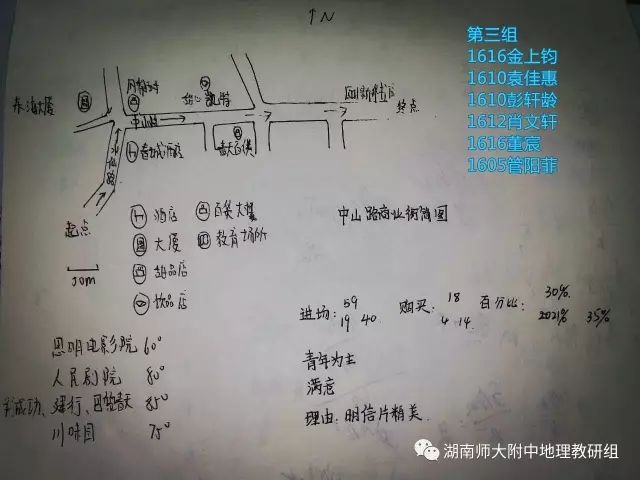 ↑N
第三组
1616金上钧
1610袁佳惠
1610彭轩龄
1612肖文轩
1616董宸
1605管阳菲
大厦
中山路
春城酒店
春天百货
终点
起点
50m
酒店
百货大楼
大厦
教育场所
甜品店
饮品店
中山路商业街简图
进场: 59
19 40
购买: 18
4 14
百分比: 30%
2021% 35%
思明电影院 60°
人民剧院 80°
85°
川味园 75°
青年为主
满意
理由: 明信片精美
湖南师大附中地理教研组